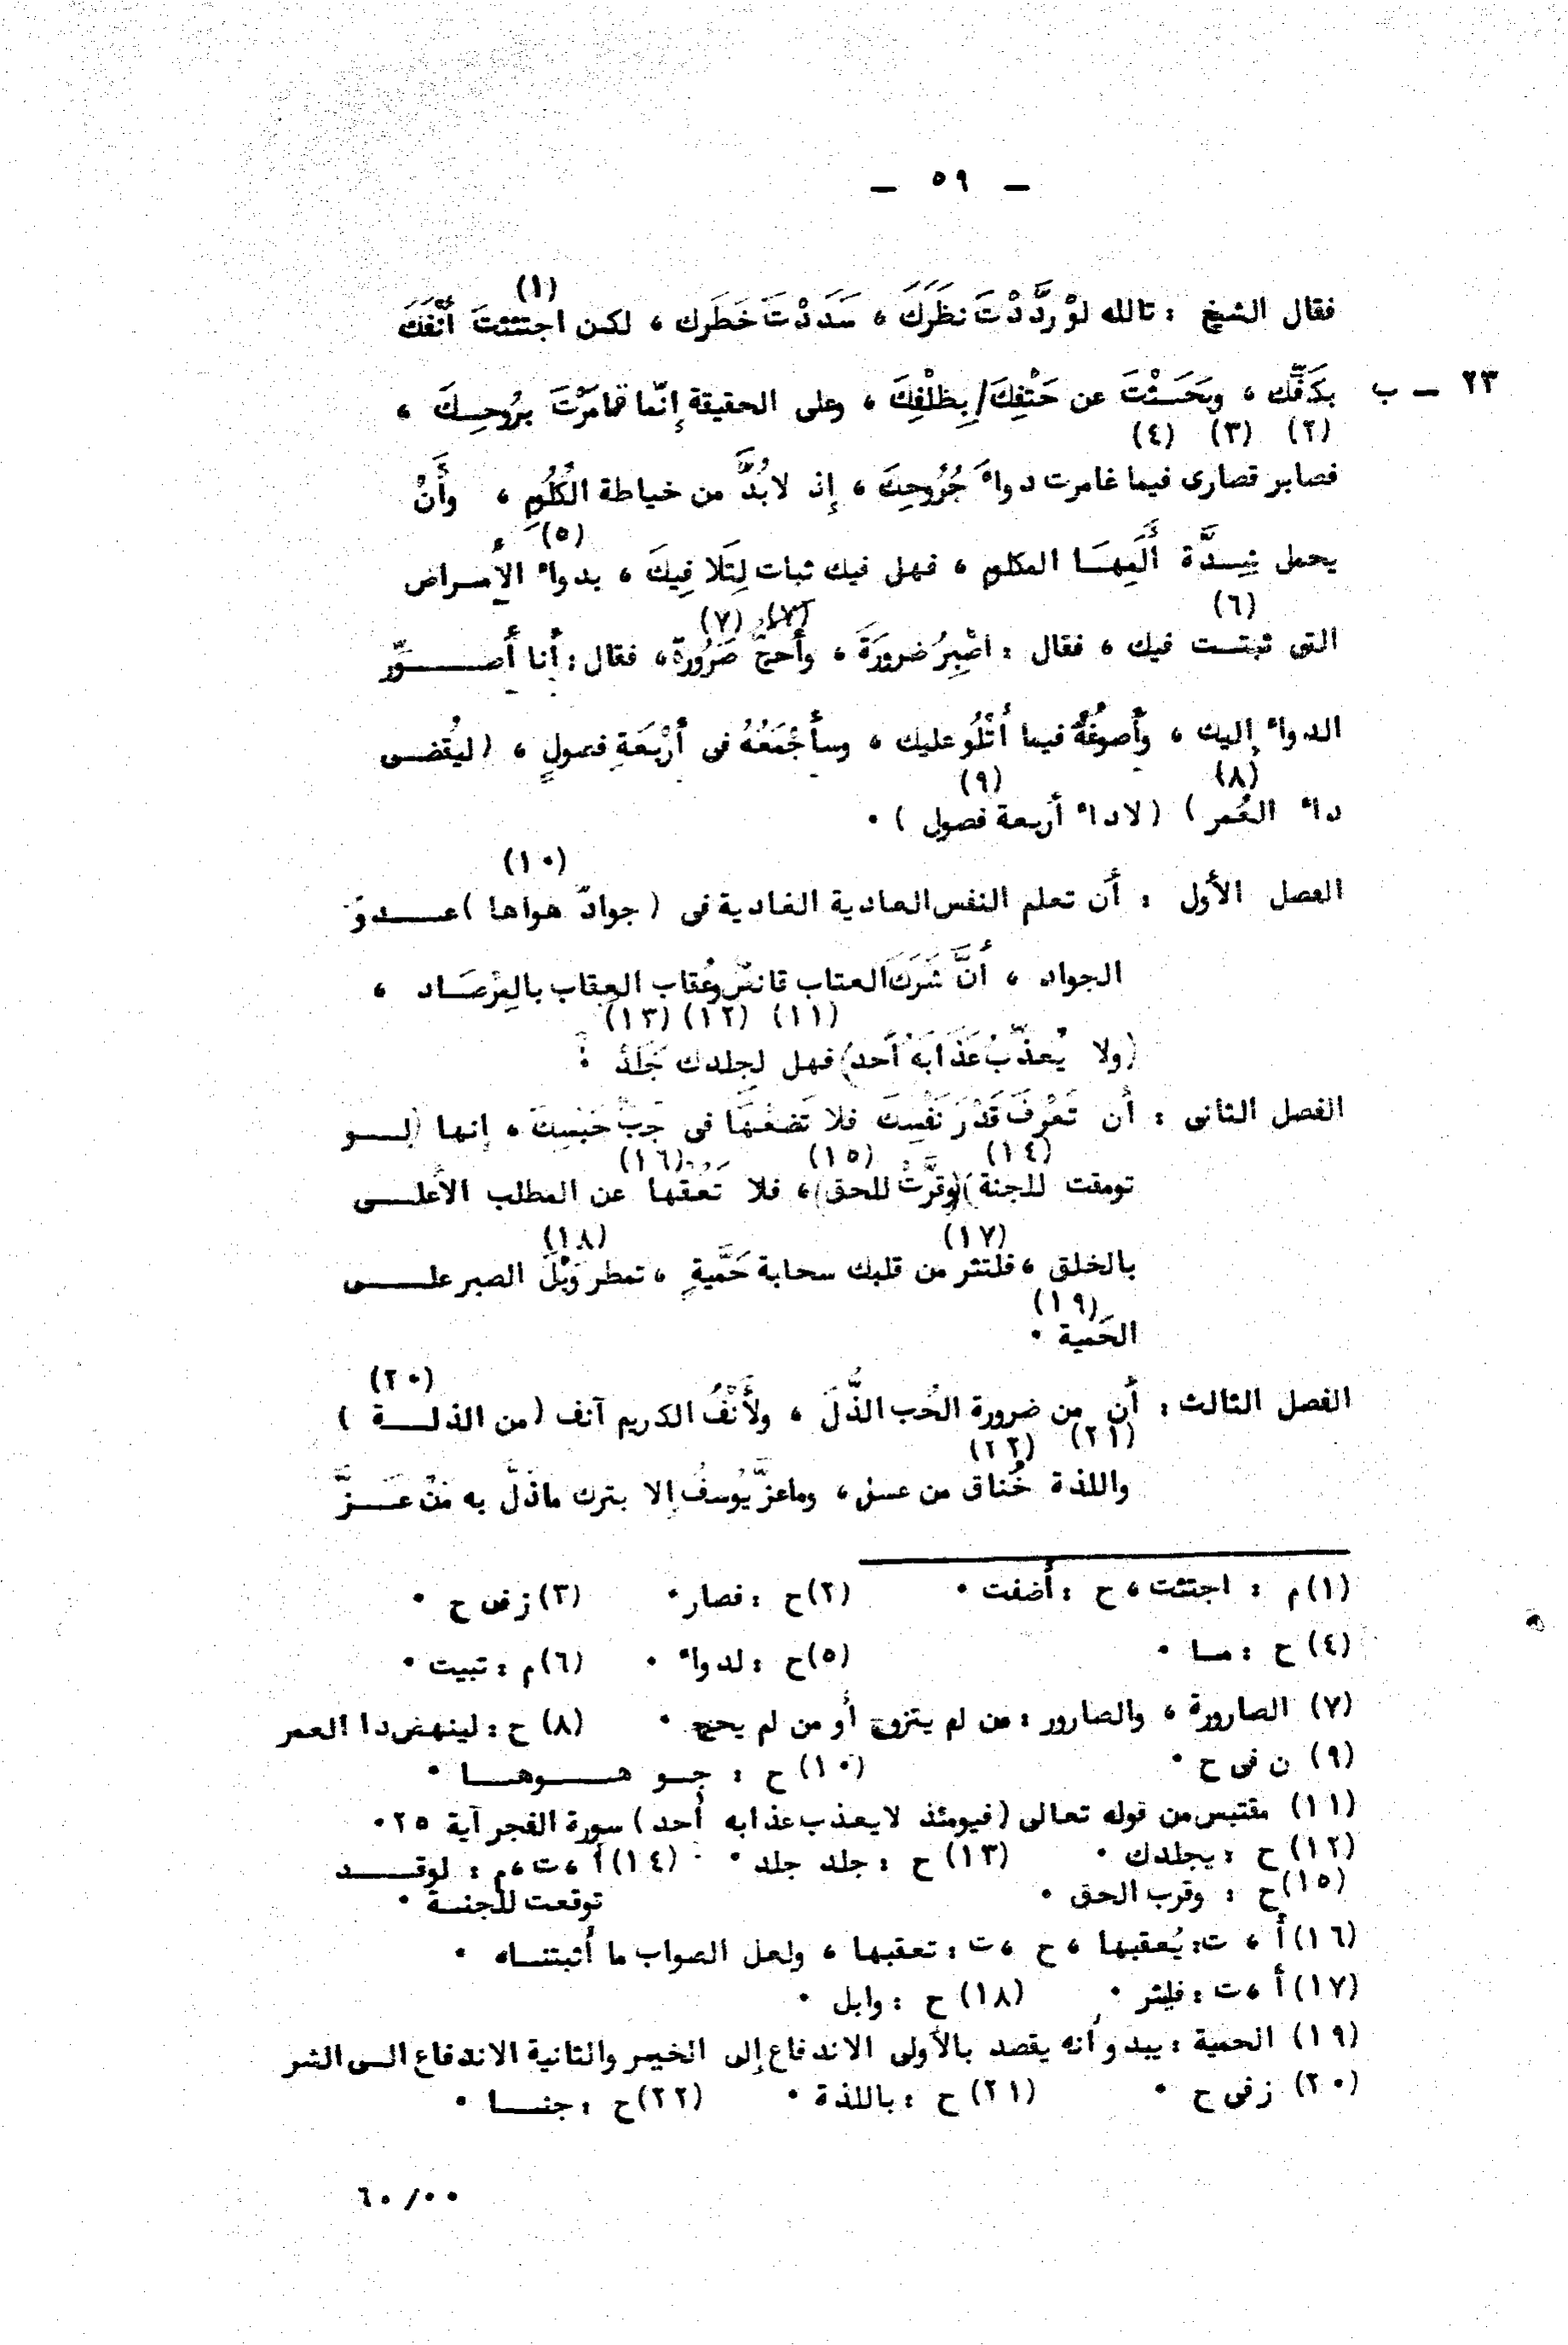 — ٥٩ —
(١)
فقال الشيخ : تالله لوْ ردَّدْتَ نظَرَكَ ، سَدَدْتَ خَطَرك ، لكن اجتثثتَ أنْفَكَ
٢٣ — ب بكَفِّك ، وبَحَثْتَ عن حَتْفِكَ/بِظلْفِكَ ، وعلى الحقيقة إنّما قامَرْتَ برُوحِـكَ ،
(٢) (٣) (٤)
فصابر قصارى فيما غامرت دواءَ جُرُوحِكَ ، إذ لابُدَّ من خياطة الكُلُومِ ، وأَنْ
(٥)
يحمل شِـدَّة أَلَمِهَـا المكلوم ، فهل فيك ثبات لِتَلافِيكَ ، بدواء الأمـراض
(٦) (٧) (٧)
التى ثبتـت فيك ، فقال : اصْبِرُ ضرورَةَ ، وأحجّ صَرُورةً ، فقال : أنا أصـــوِّر
الدواء إليك ، وأصوغُهُ فيما أتْلُو عليك ، وسأجْمَعُهُ فى أرْبَعَةِ فصولٍ ، (ليُقضـى
(٨) (٩)
داء العُمر) (لاداء أربعة فصول ) .
(١٠)
الفصل الأول : أَن تعلم النفس العادية الغادية فى ( جوادّ هواها ) عــدوَ
الجواد ، أَنَّ شَرَكَ العتاب قانص وعُقاب العِقاب بالمِرْصَـاد ،
(١١) (١٢) (١٣)
(ولا يُعذِّبُ عَذَابَهُ أَحد) فهل لجلدك جَلَدُ :
الفصل الثانى : أن تَعْرِفَ قَدْرَ نَفْسِكَ فلا تَضعْهَا فى جبّ حَبْسِكَ ، إنها (لــو
(١٤) (١٥) (١٦)
تومقت للجنة) (وقرَّتْ للحق) ، فلا تَعُقْها عن المطلب الأعلــى
(١٧) (١٨)
بالخلق ، فلتثر من قلبك سحابة حَمَّيةِ ، تمطر وَبْلَ الصبر علــى
(١٩)
الحَمية .
(٢٠)
الفصل الثالث : أن من ضرورة الحُب الذُّلَ ، ولأَنْفُ الكريم آنف (من الذلــة )
(٢١) (٢٢)
واللذة خُناق من عسل ، وماعزَّ يُوسفُ إلا بترك ماذَلَّ به مَنْ عَــزَّ
(١) م : اجتثثت ، ح : أضفت . (٢) ح : فصار . (٣) ز فى ح .
(٤) ح : مـا . (٥) ح : لدواء . (٦) م : تبيت .
(٧) الصارورة ، والصارور : من لم يتزوج أو من لم يحج . (٨) ح : لينهض دا العمر
(٩) ن فى ح . (١٠) ح : جـو هــوهـا .
(١١) مقتبس من قوله تعالى (فيومئذ لايعذب عذابه أحد) سورة الفجر آية ٢٥ .
(١٢) ح : يجلدك . (١٣) ح : جلد جلد . (١٤) أ ، ت ، م : لوقــد
توقعت للجنـة .
(١٥) ح : وقرب الحق .
(١٦) أ ، ت : يُعقبها ، ح ، ت : تعقبها ، ولعل الصواب ما أثبتنـاه .
(١٧) أ ، ت : فليثر . (١٨) ح : وابل .
(١٩) الحمية : يبدو أنه يقصد بالأولى الاندفاع إلى الخير والثانية الاندفاع الـى الشر
(٢٠) ز فى ح . (٢١) ح : باللذة . (٢٢) ح : جنـا .
٦٠/٠٠